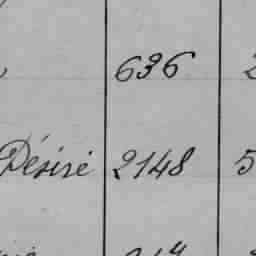 636
Désiré 2148 5